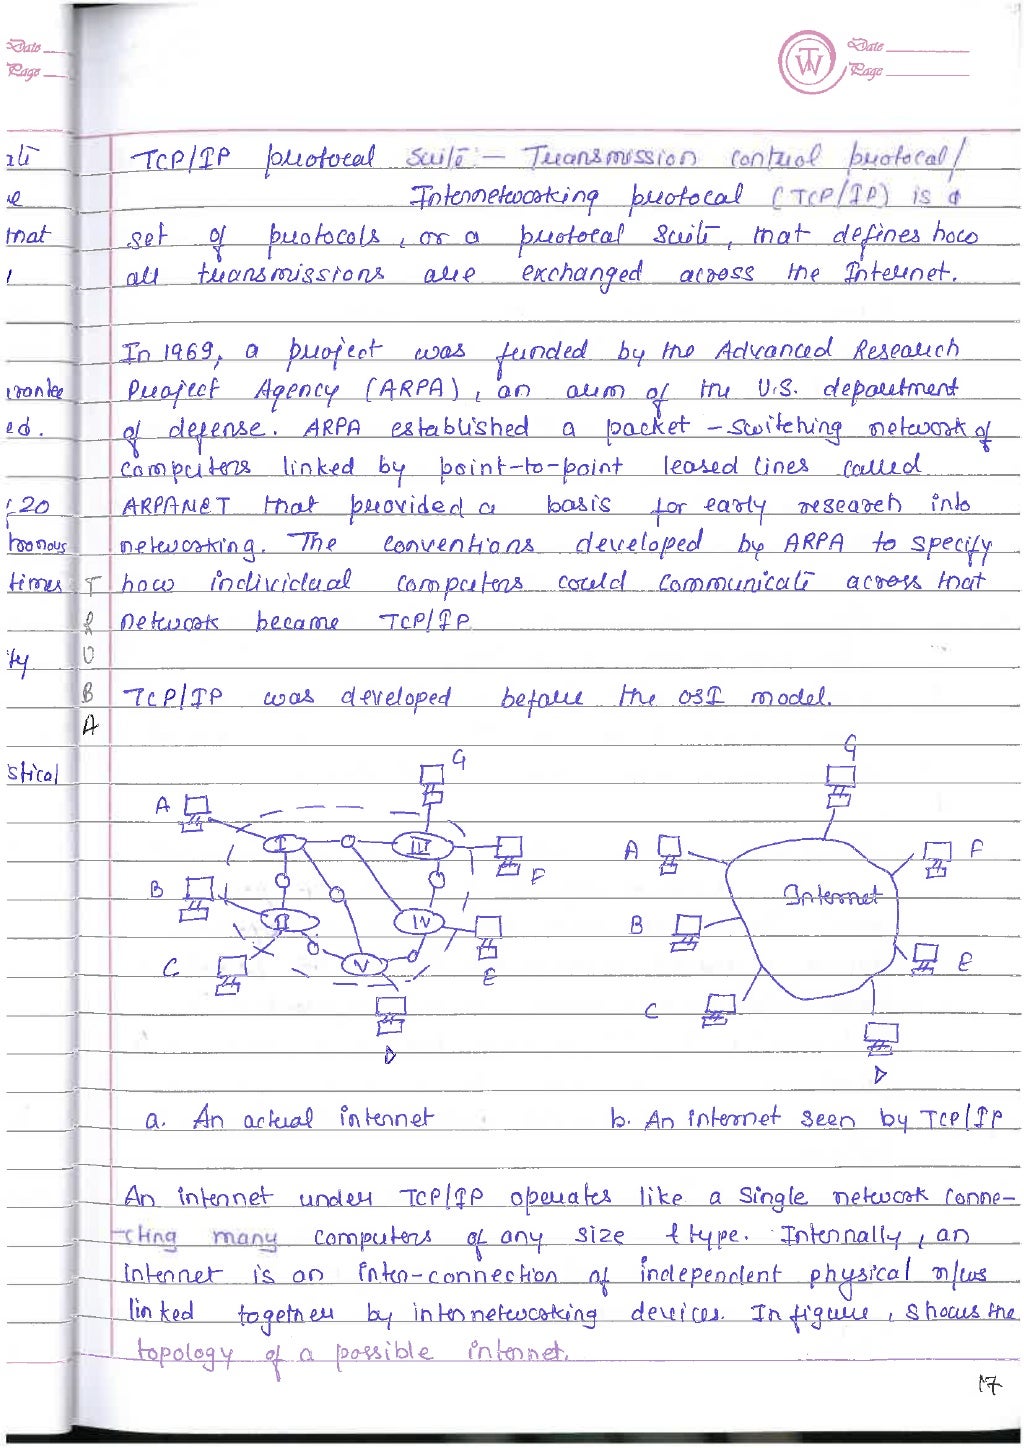 Date
Page
TW
Date
Page
TCP/IP protocal Suite :- Transmission control protocal/
Internetworking protocal (TCP/IP) is a
that
set of protocols, or a protocal Suite, that defines how
all transmissions are exchanged across the Internet.
In 1969, a project was funded by the Advanced Research
Project Agency (ARPA), an arm of the U.S. department
ed.
of defense. ARPA established a packet - switching network of
computers linked by point-to-point leased lines called
20
ARPANET that provided a basis for early research into
networking. The conventions developed by ARPA to specify
times
how individual computers could communicate across that
network became TCP/IP
TRUBA
TCP/IP was developed before the OSI model.
stical
G
A
I
III
F
B
II
IV
E
C
V
D
G
A
F
Internet
B
E
C
D
a. An actual internet
b. An internet seen by TCP/IP
An internet under TCP/IP operates like a single network conne-
-cting many computers of any size & type. Internally, an
internet is an inter-connection of independent physical n/ws
linked together by internetworking devices. In figure, shows the
topology of a possible internet.
17